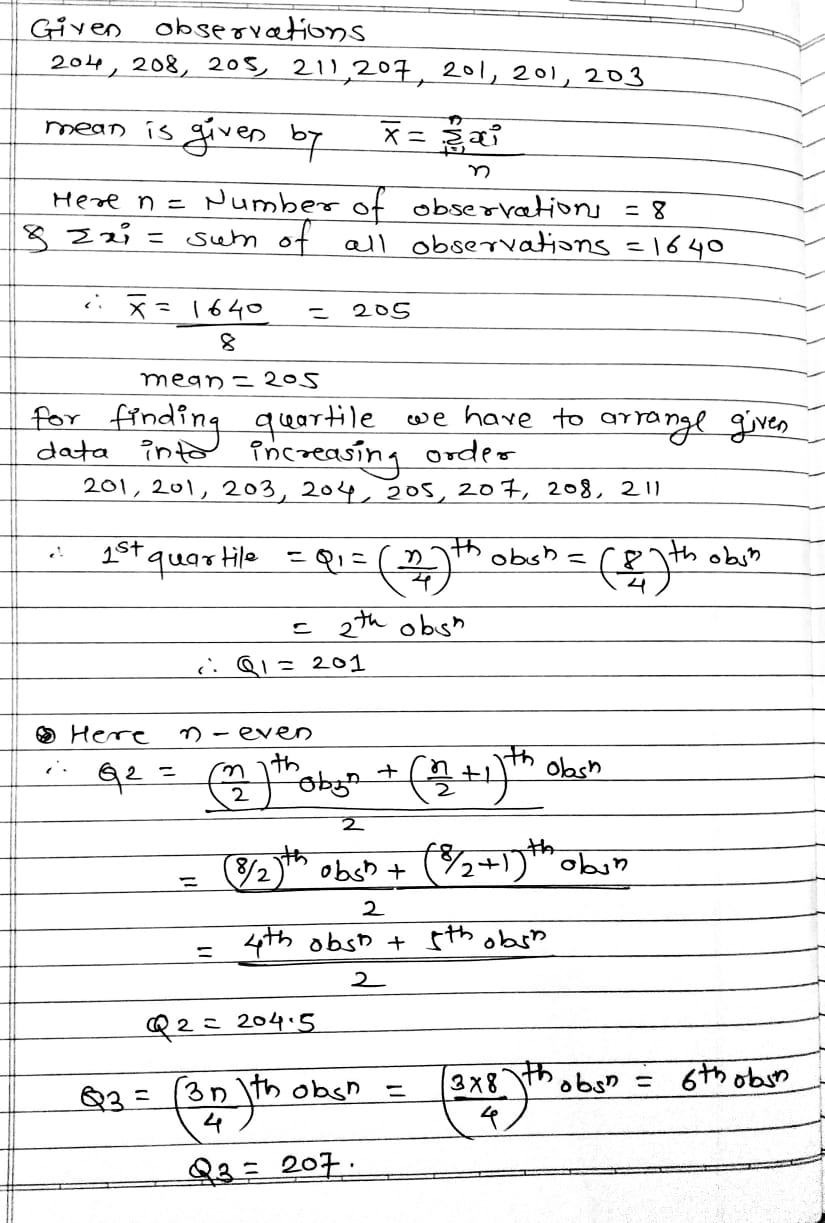 Given observations
204, 208, 205, 211, 207, 201, 201, 203
mean is given by x̄ = Σⁿᵢ₌₁ xi / n
Here n = Number of observations = 8
& Σxi = sum of all observations = 1640
∴ x̄ = 1640 / 8 = 205
mean = 205
for finding quartile we have to arrange given
data into increasing order
201, 201, 203, 204, 205, 207, 208, 211
∴ 1st quartile = Q1 = (n/4)th obsn = (8/4)th obsn
= 2th obsn
∴ Q1 = 201
Here n - even
∴ Q2 = (n/2)th obsn + (n/2 + 1)th obsn / 2
= (8/2)th obsn + (8/2+1)th obsn / 2
= 4th obsn + 5th obsn / 2
Q2 = 204.5
Q3 = (3n/4)th obsn = (3x8/4)th obsn = 6th obsn
Q3 = 207.